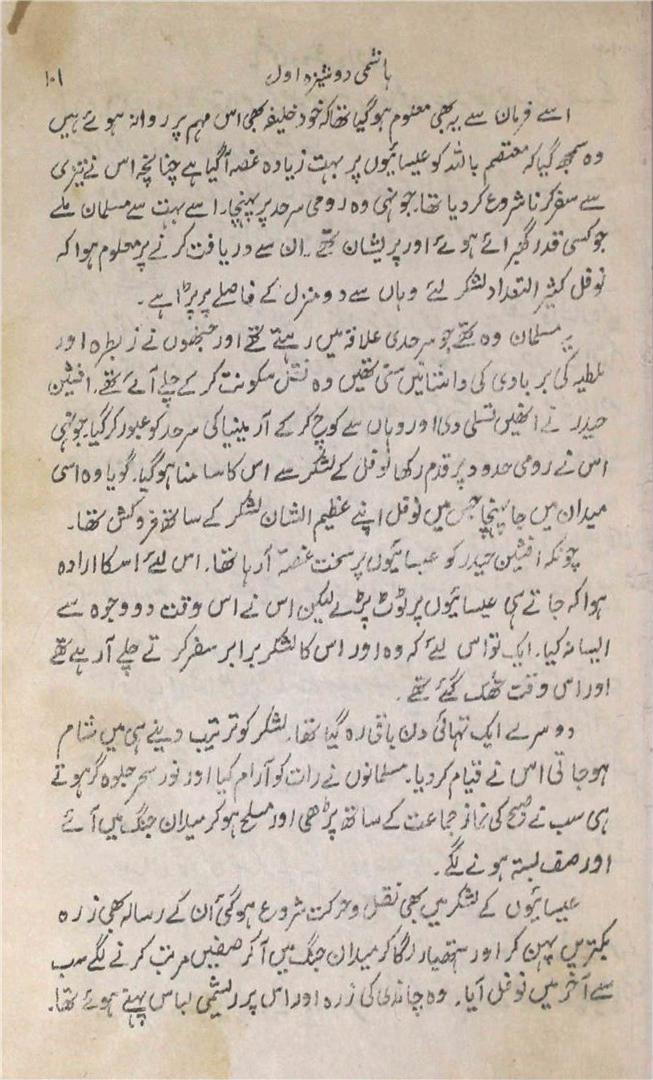 ہاشمی دوشیزہ اول ۱۰۱
اسے فرمان سے یہ بھی معلوم ہو گیا تھا کہ خود خلیفہ بھی اس مہم پر روانہ ہوئے ہیں
وہ سمجھ گیا کہ معتصم باللہ کو عیسائیوں پر بہت زیادہ غصہ آ گیا ہے چنانچہ اس نے تیزی
سے سفر کرنا شروع کر دیا تھا۔ جونہی وہ رومی سرحد پر پہنچا۔ اسے بہت سے مسلمان ملے
جو کسی قدر گھبرائے ہوئے اور پریشان تھے۔ ان سے دریافت کرنے پر معلوم ہوا کہ
نوفل کثیر التعداد لشکر لئے وہاں سے دو منزل کے فاصلے پر پڑا ہے۔
یہ مسلمان وہ تھے جو سرحدی علاقہ میں رہتے تھے اور جنھوں نے زبطرہ اور
ملطیہ کی بربادی کی داستانیں سنی تھیں وہ نقل سکونت کر کے چلے آئے تھے۔ افشین
حیدر نے انھیں تسلی دی اور وہاں سے کوچ کر کے آرمینیا کی سرحد کو عبور کر گیا۔ جونہی
اس نے رومی حدود پر قدم رکھا نوفل کے لشکر سے اس کا سامنا ہو گیا۔ گویا وہ اسی
میدان میں جا پہنچا جس میں نوفل اپنے عظیم الشان لشکر کے ساتھ فروکش تھا۔
چونکہ افشین حیدر کو عیسائیوں پر سخت غصہ آ رہا تھا۔ اس لئے اسکا ارادہ
ہوا کہ جاتے ہی عیسائیوں پر ٹوٹ پڑے لیکن اس نے اس وقت دو وجوہ سے
ایسا نہ کیا۔ ایک تو اس لئے کہ وہ اور اس کا لشکر برابر سفر کرتے چلے آ رہے تھے
اور اس وقت تھک گئے تھے۔
دوسرے ایک تہائی دن باقی رہ گیا تھا۔ لشکر کو ترتیب دینے ہی میں شام
ہو جاتی اس نے قیام کر دیا۔ مسلمانوں نے رات کو آرام کیا اور نور سحر جلوہ گر ہوتے
ہی سب نے صبح کی نماز جماعت کے ساتھ پڑھی اور مسلح ہو کر میدان جنگ میں آئے
اور صف بستہ ہونے لگے۔
عیسائیوں کے لشکر میں بھی نقل و حرکت شروع ہو گئی ان کے رسالہ بھی زرہ
بکتریں پہن کر اور ہتھیار لگا کر میدان جنگ میں آ کر صفیں مرتب کرنے لگے سب
سے آخر میں نوفل آیا۔ وہ چاندی کی زرہ اور اس پر ریشمی لباس پہنے ہوئے تھا۔